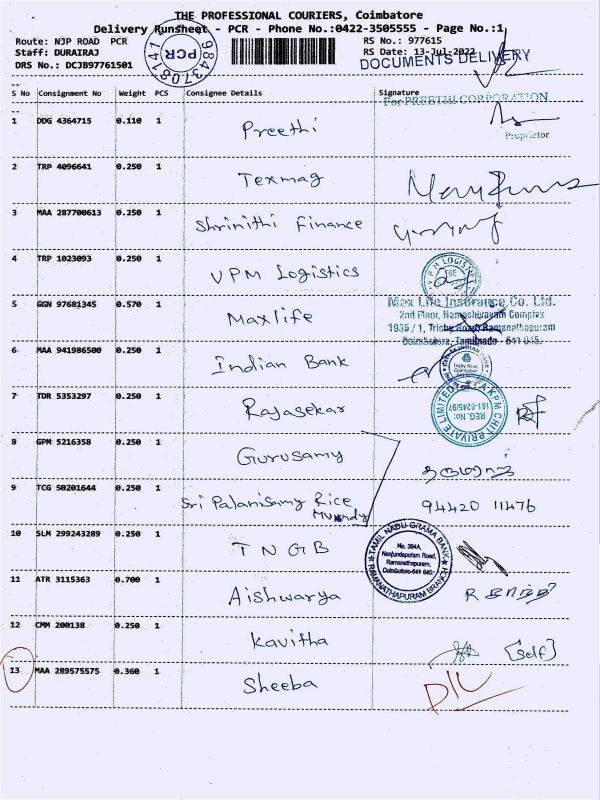 THE PROFESSIONAL COURIERS, Coimbatore
Delivery Runsheet - PCR - Phone No.:0422-3505555 - Page No.:1
Route: NJP ROAD PCR
RS No.: 977615
Staff: DURAIRAJ
RS Date: 13-Jul-2022
DRS No.: DCJB97761501
PCR
9843708141
DOCUMENTS DELIVERY
S No Consignment No Weight PCS Consignee Details Signature
For PREETHI CORPORATION
1 DDG 4364715 0.110 1 Preethi
Proprietor
2 TRP 4096641 0.250 1 Texmag
3 MAA 287700613 0.250 1 Shrinithi Finance
4 TRP 1023093 0.250 1 VPM Logistics
VPM LOGISTI
5 GGN 97681345 0.570 1 Maxlife
Max Life Insurance Co. Ltd.
2nd Floor, Namashivayam Complex
1935 / 1, Trichy Road, Ramanathapuram
Coimbatore, Tamilnadu - 641 045.
6 MAA 941986500 0.250 1 Indian Bank
INDIAN BANK
Trichy Road
Coimbatore
7 TDR 5353297 0.250 1 Rajasekar
KPM CHIT PRIVATE LIMITED
REG. No:
181-8245/97
8 GPM 5216358 0.250 1 Gurusamy
9 TCG 50201644 0.250 1 Sri Palanisamy Rice
Mundy
94420 11476
10 SLM 299243289 0.250 1 TNGB
TAMIL NADU GRAMA BANK
No. 384A,
Nanjundapuram Road,
Ramanathapuram,
Coimbatore-641 045.
RAMANATHAPURAM BRANCH
11 ATR 3115363 0.700 1 Aishwarya
12 CMM 200138 0.250 1 Kavitha
[Self]
13 MAA 289575575 0.360 1 Sheeba
D/L